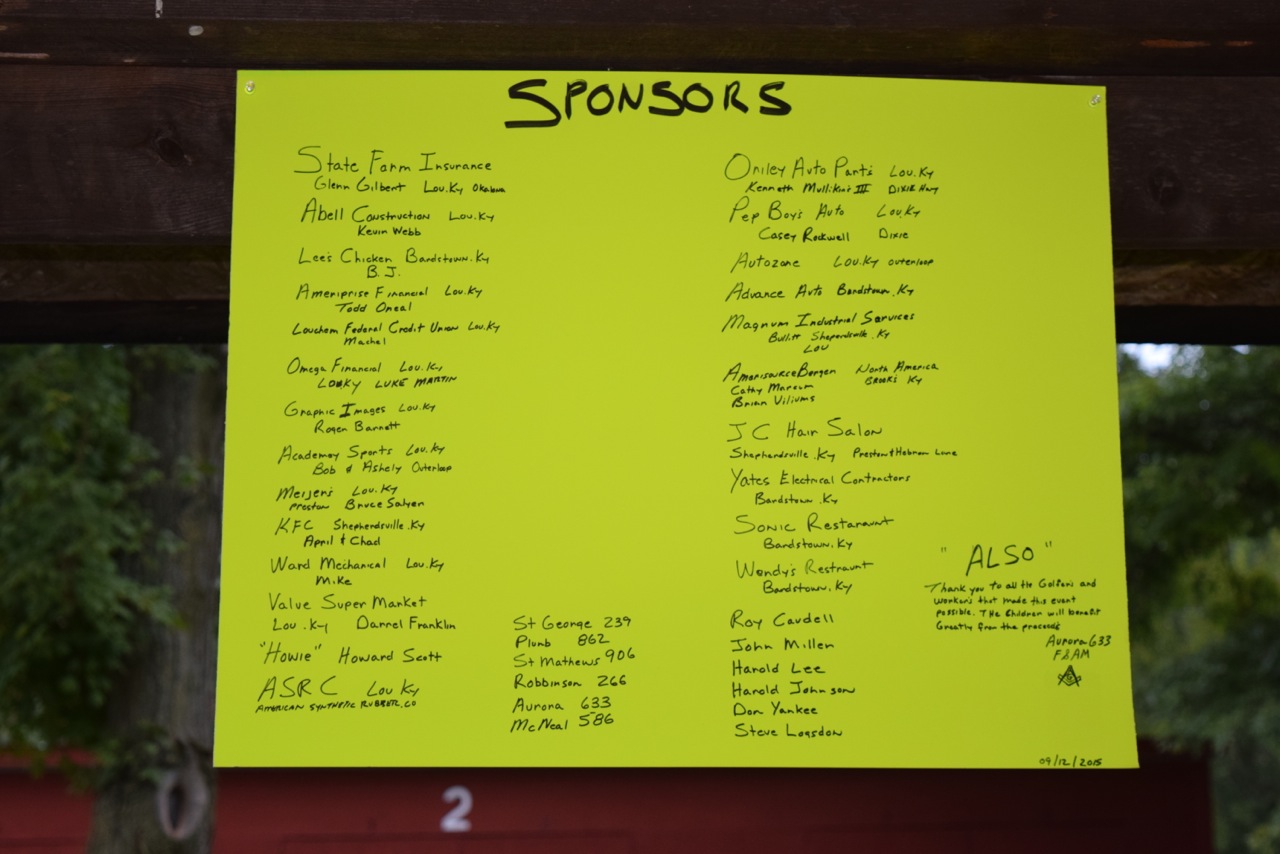 SPONSORS
State Farm Insurance
Glenn Gilbert Lou.Ky Okolona
Abell Construction Lou.Ky
Kevin Webb
Lee's Chicken Bardstown.Ky
B.J.
Ameriprise Financial Lou.Ky
Todd Oneal
Louchem Federal Credit Union Lou.Ky
Machel
Omega Financial Lou.Ky
LUKE MARTIN
Graphic Images Lou.Ky
Roger Barnett
Academy Sports Lou.Ky
Bob & Ashely Outerloop
Meijer's Lou.Ky
Preston Bruce Salyer
KFC Shepherdsville.Ky
April & Chad
Ward Mechanical Lou.Ky
Mike
Value Super Market
Lou.Ky Darrel Franklin
"Howie" Howard Scott
ASRC Lou Ky
AMERICAN SYNTHETIC RUBBER.CO
St George 239
Plumb 862
St Mathews 906
Robbinson 266
Aurora 633
McNeal 586
Oriley Auto Parts Lou.Ky
Kenneth Mullikin III DIXIE Hwy
Pep Boy's Auto Lou.Ky
Casey Rockwell Dixie
Autozone Lou.Ky outerloop
Advance Auto Bardstown.Ky
Magnum Industrial Services
Bullitt Shepherdsville.Ky
Lou
AmerisourceBergen North America
Cathy Marcum BROOKS Ky
Brian Viliums
JC Hair Salon
Shepherdsville.Ky Preston & Hebron Lane
Yates Electrical Contractors
Bardstown.Ky
Sonic Restaraunt
Bardstown.Ky
Wendy's Restraunt
Bardstown.Ky
Roy Caudell
John Miller
Harold Lee
Harold Johnson
Don Yankee
Steve Logsdon
"ALSO"
Thank you to all the Golfers and
workers that made this event
possible. THe Children will benefit
Greatly from the proceeds
Aurora 633
F&AM
G
09/12/2015
2